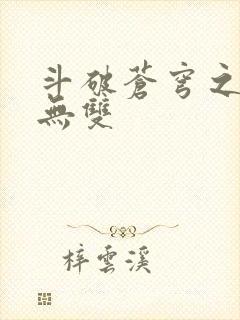 斗破蒼穹之
無雙
梓雲溪